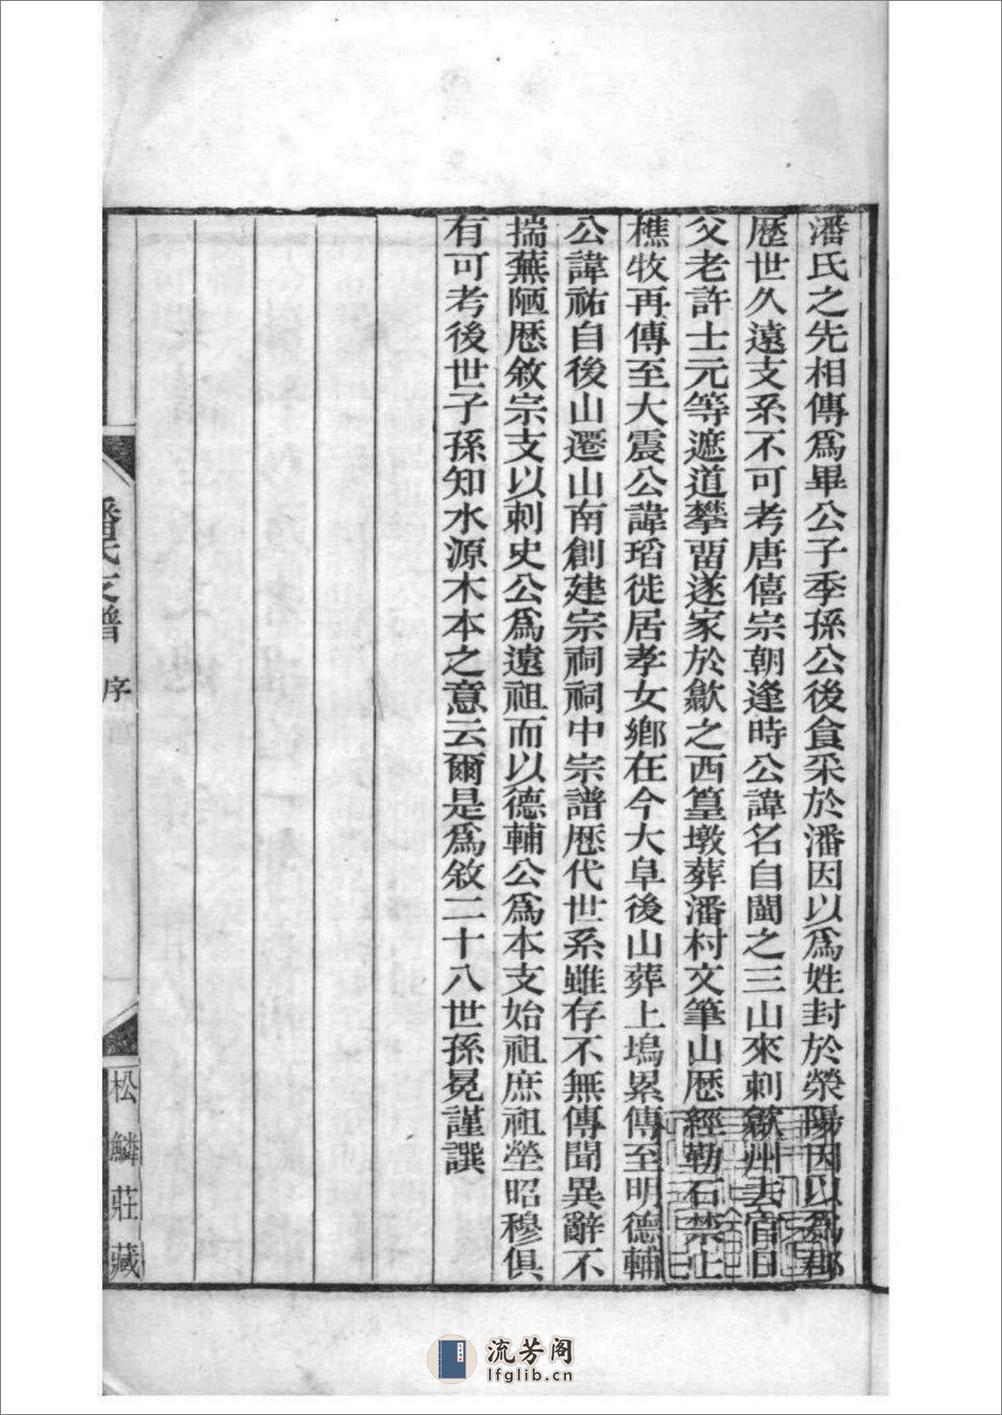 潘氏之先相傳爲畢公子季孫公後食采於潘因以爲姓封於滎陽因以爲郡
歷世久遠支系不可考唐僖宗朝逢時公諱名自閩之三山來刺歙州去官日
父老許士元等遮道攀畱遂家於歙之西篁墩葬潘村文筆山歷經勒石禁止
樵牧再傳至大震公諱瑫徙居孝女鄉在今大阜後山葬上塢累傳至明德輔
公諱祐自後山遷山南創建宗祠祠中宗譜歷代世系雖存不無傳聞異辭不
揣蕪陋歷敘宗支以刺史公爲遠祖而以德輔公爲本支始祖庶祖塋昭穆俱
有可考後世子孫知水源木本之意云爾是爲敘二十八世孫冕謹譔
潘氏支譜
序
松鱗莊藏
流芳阁
lfglib.cn